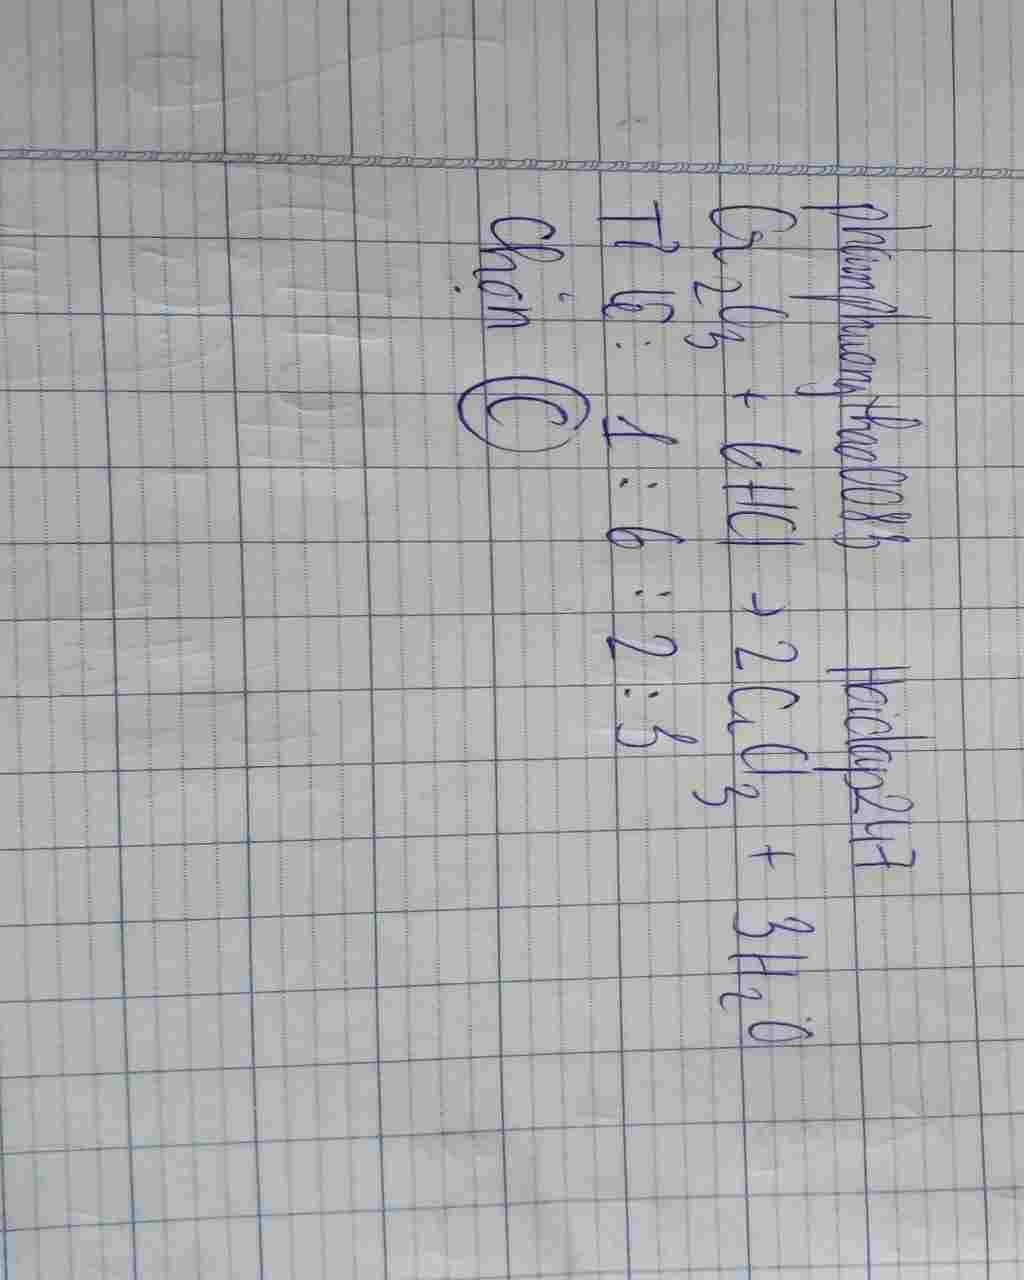 phamphuongthao0083 Hoidap247
Cr2O3 + 6HCl → 2CrCl3 + 3H2O
Tỉ lệ: 1 : 6 : 2 : 3
Chọn C